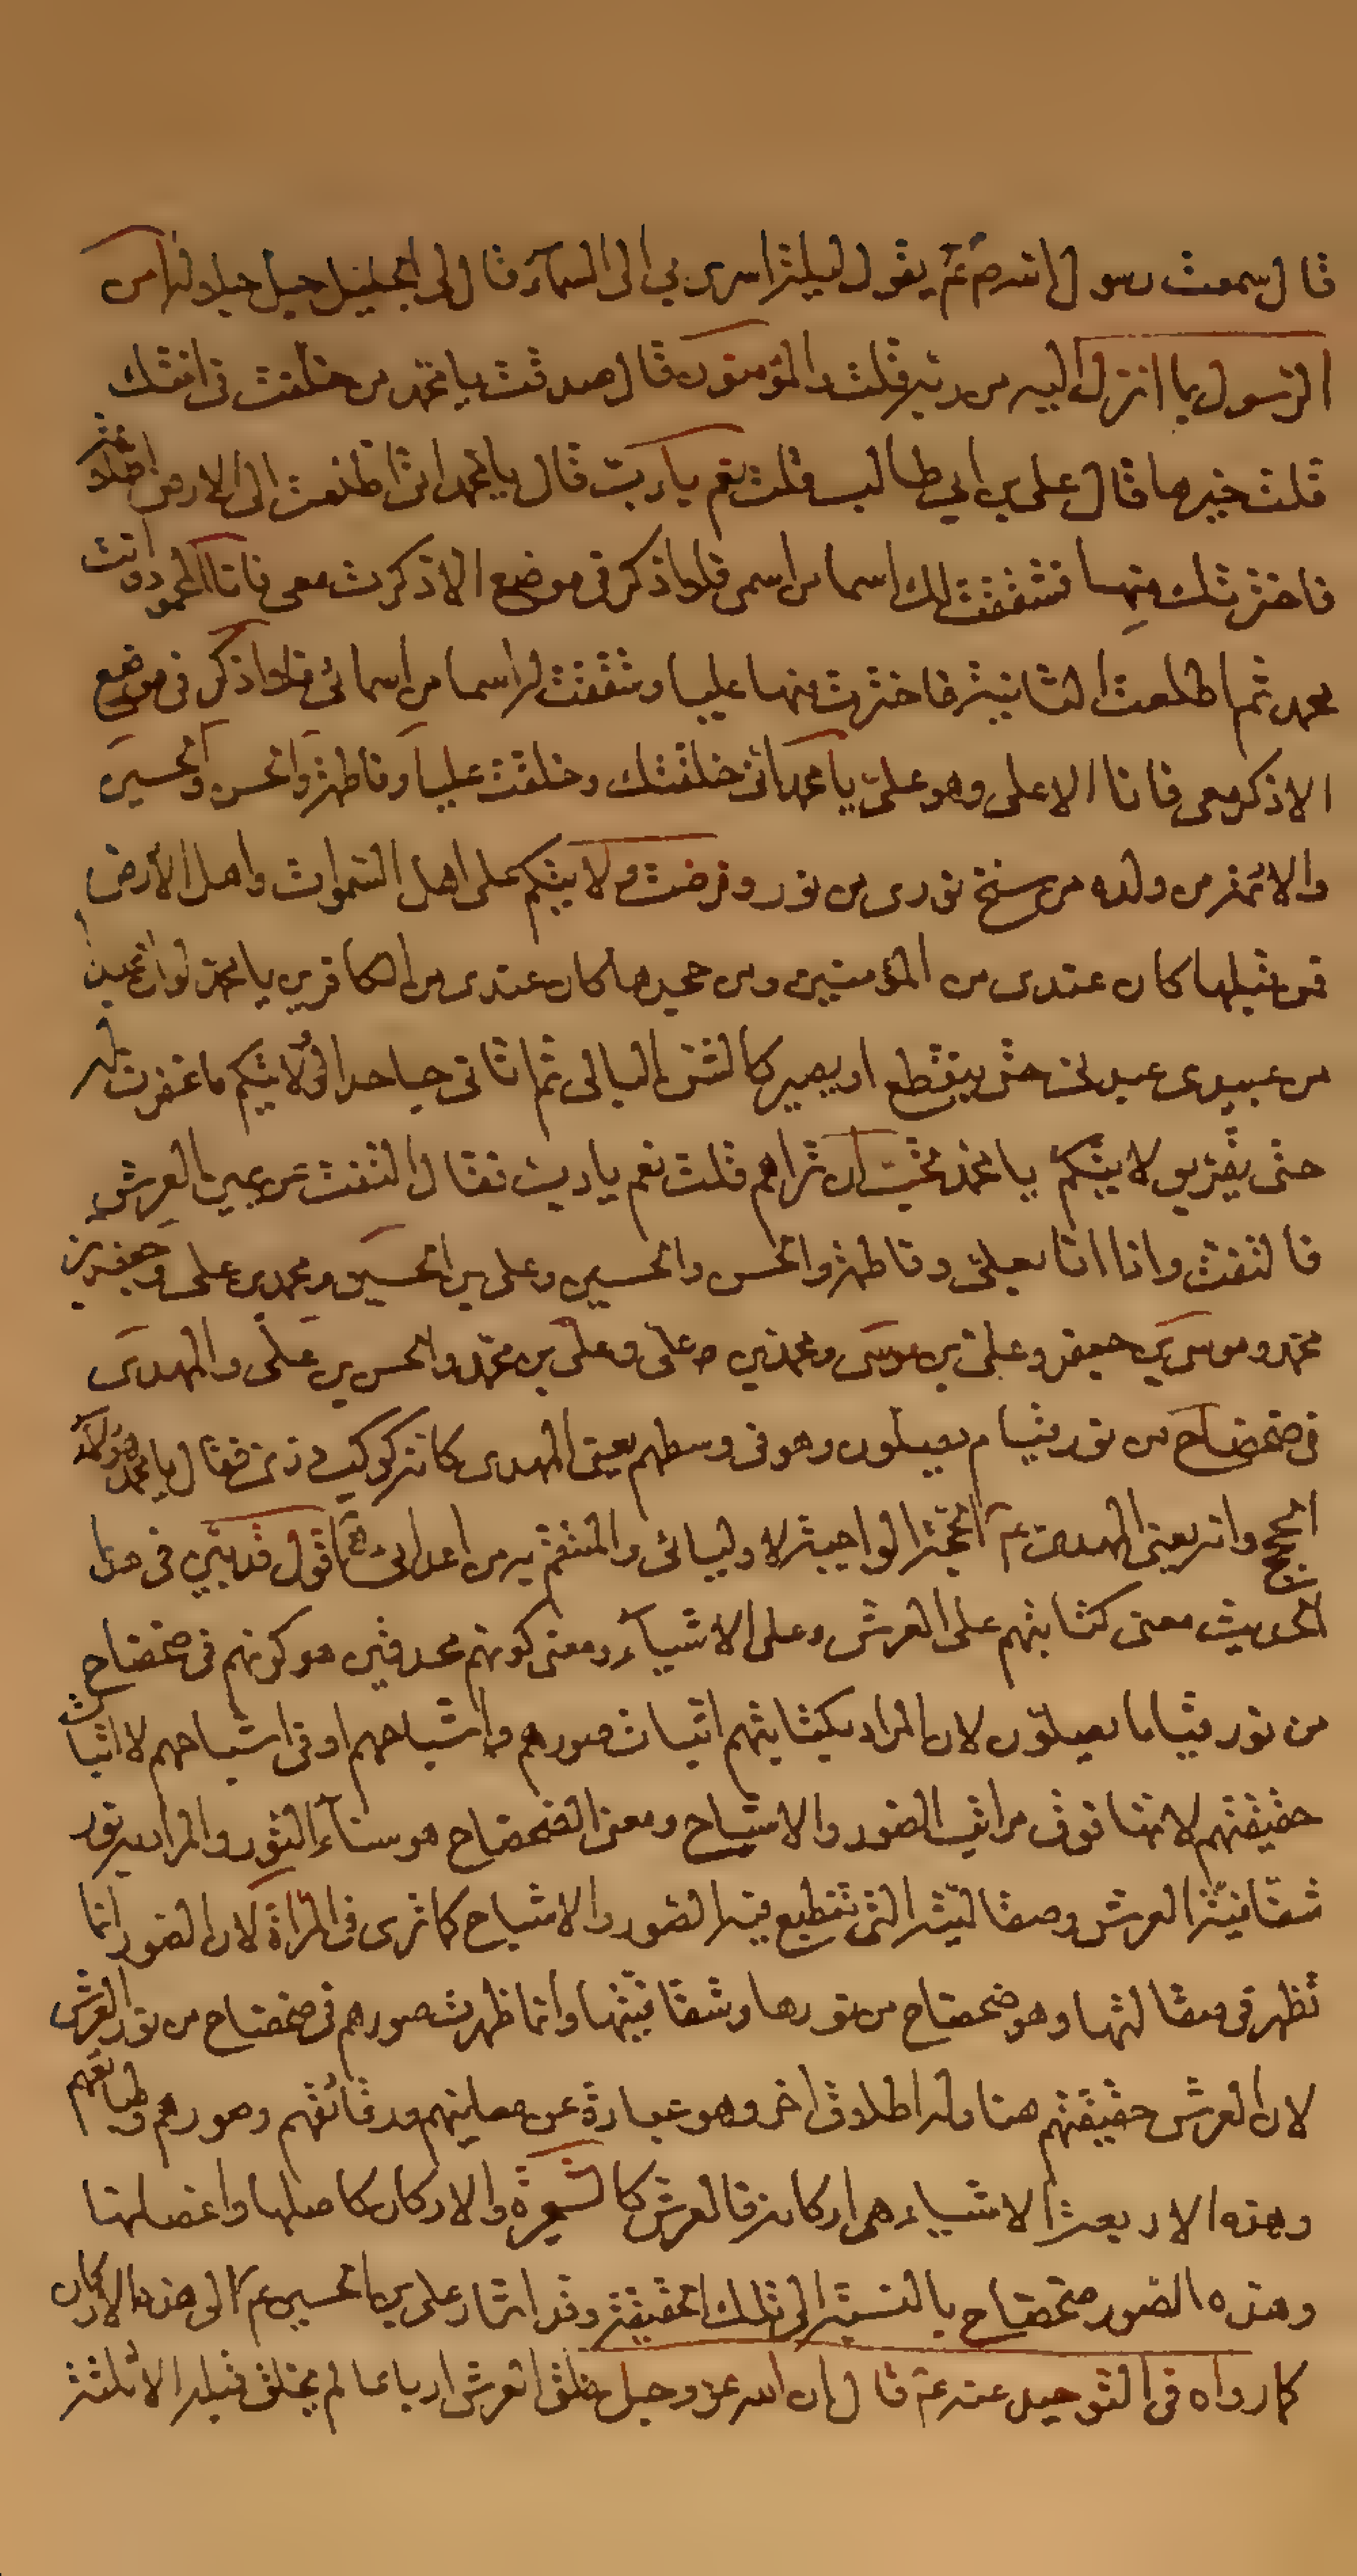 قال سمعت رسول الله ص ع يقول ليلة اسرى بي الى السماء قال لى الجليل جل جلاله امن
الرسول بما انزل اليه من ربه قلت والمؤمنون قال صدقت يا محمد من خلفت فى امتك
قلت خيرها قال على بن ابي طالب قلت نعم يا رب قال يا محمد انى اطلعت الى الارض اطلاعة
فاخترتك منها فشققت لك اسما من اسمى فلا اذكر فى موضع الا ذكرت معى فانا المحمود وانت
محمد ثم اطلعت الثانية فاخترت منها عليا وشققت له اسما من اسمائى فلا اذكر فى موضع
الا ذكر معى فانا الاعلى وهو على يا محمد انى خلقتك وخلقت عليا وفاطمة والحسن والحسين
والائمة من ولده من سنخ نورى من نور وفرضت ولايتكم على اهل السموات واهل الارض
فمن قبلها كان عندى من المؤمنين ومن جحدها كان عندى من الكافرين يا محمد لو ان عبدا
من عبيدى عبدنى حتى ينقطع او يصير كالشن البالى ثم اتانى جاحدا لولايتكم ما غفرت له
حتى يقر بولايتكم يا محمد تحب ان تراهم قلت نعم يا رب فقال التفت عن يمين العرش
فالتفت واذا انا بعلى وفاطمة والحسن والحسين وعلى بن الحسين ومحمد بن على وجعفر بن
محمد وموسى بن جعفر وعلى بن موسى ومحمد بن على وعلى بن محمد والحسن بن على والمهدى
فى ضحضاح من نور قيام يصلون وهو فى وسطهم يعنى المهدى كانه كوكب درى فقال يا محمد هؤلاء
الحجج وانه يعنى المهدى ع الحجة الواجبة لاوليائى والمنتقم من اعدائى اقول قد بين فى هذا
الحديث معنى كتابتهم على العرش وعلى الاشياء ومعنى كونهم محدقين هو كونهم فى ضحضاح
من نور قياما يصلون لان المراد بكتابتهم اثبات صورهم واشباحهم او فى اشباحهم لا اثبات
حقيقتهم لانها فوق مراتب الصور والاشباح ومعنى الضحضاح هو سناء النور والمراد به نور
شفافية العرش وصقالته التى تنطبع فيه الصور والاشباح كما ترى فى المراة لان الصور انما
تظهر فى صقالتها وهو ضحضاح من نورها وشفافيتها وانما ظهرت صورهم فى ضحضاح من نور العرش
لان العرش حقيقتهم هنا وله اطلاق اخر وهو عبارة عن عقليتهم ورقائقهم وصورهم وطبائعهم
وهذه الاربعة الاشياء هى اركانه فالعرش كالشجرة والاركان كاصلها واغصانها
وهذه الصور ضحضاح بالنسبة الى تلك الحقيقة وقد اشار على بن الحسين ع الى هذه الاركان
كما رواه فى التوحيد عنه ع قال ان الله عز وجل خلق العرش ارباعا لم يخلق قبله الا ثلثة